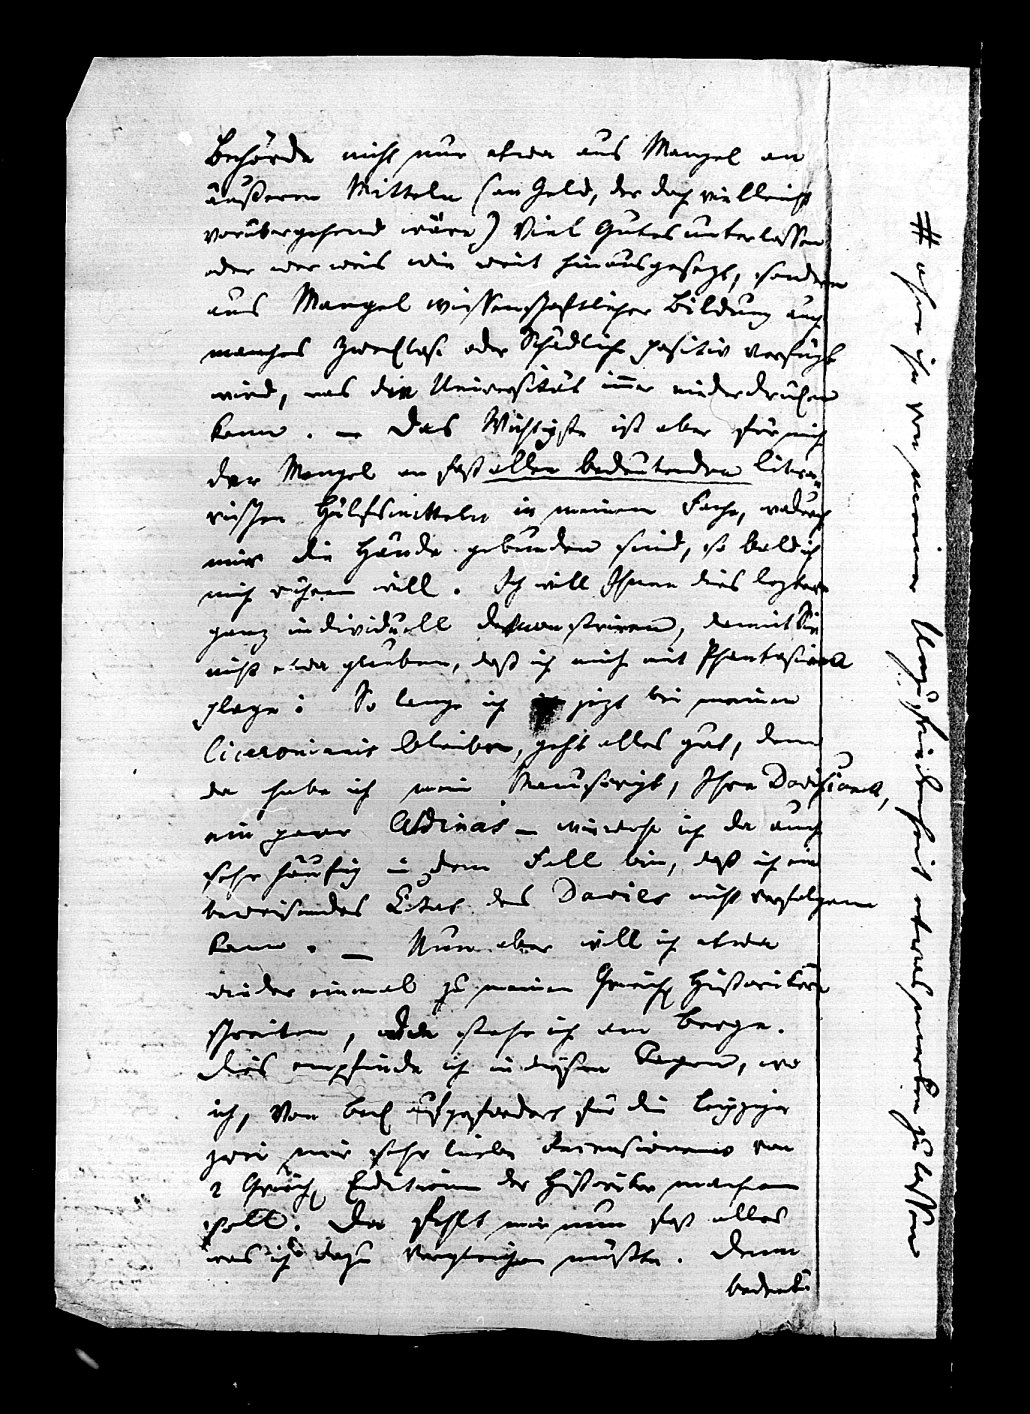 Behörde nicht nur etwa aus Mangel an
äußeren Mitteln (an Geld, der doch vielleicht
vorübergehend wäre) viel Gutes unterlassen
oder wer weis wie weit hinausgesezt, sondern
aus Mangel wissenschaftlicher Bildung auch
manches zwecklose oder Schädliche positiv verfügt
wird, was die Universität immer niederdrücken
kann. – Das Wichtigste ist aber für mich
der Mangel an fast allen bedeutenden litera-
rischen Hülfsmitteln in meinem Fache, wodurch
mir die Hände gebunden sind, so bald ich
mich rühren will. Ich will Ihnen dies leztere
ganz individuell demonstriren, damit Sie
nicht etwa glauben, daß ich mich mit Phantasieen
plage: So lange ich jezt bei meinen
Ciceronianis bleibe, geht alles gut, denn
da habe ich mein Manuscript, Ihre Davisiana,
ein paar Aldinas – wiewohl ich da auch
sehr häufig in dem Fall bin, daß ich ein
beweisendes Citat des Davies nicht verfolgen
kann. – Nun aber will ich etwa
wieder einmal zu meinen Griech Historikern
schreiten, da stehe ich am Berge.
Dies empfinde ich in diesen Tagen, wo
ich, von Beck aufgefordert für die Leipziger
zwei mir sehr liebe Recensionen von
2 Griech Editionen der Historiker machen
soll. Da fehlt mir nun fast alles
was ich dazu vergleichen müßte. Denn
bedenken
# ohne ihr von meiner Unzufriedenheit etwas merken zu lassen